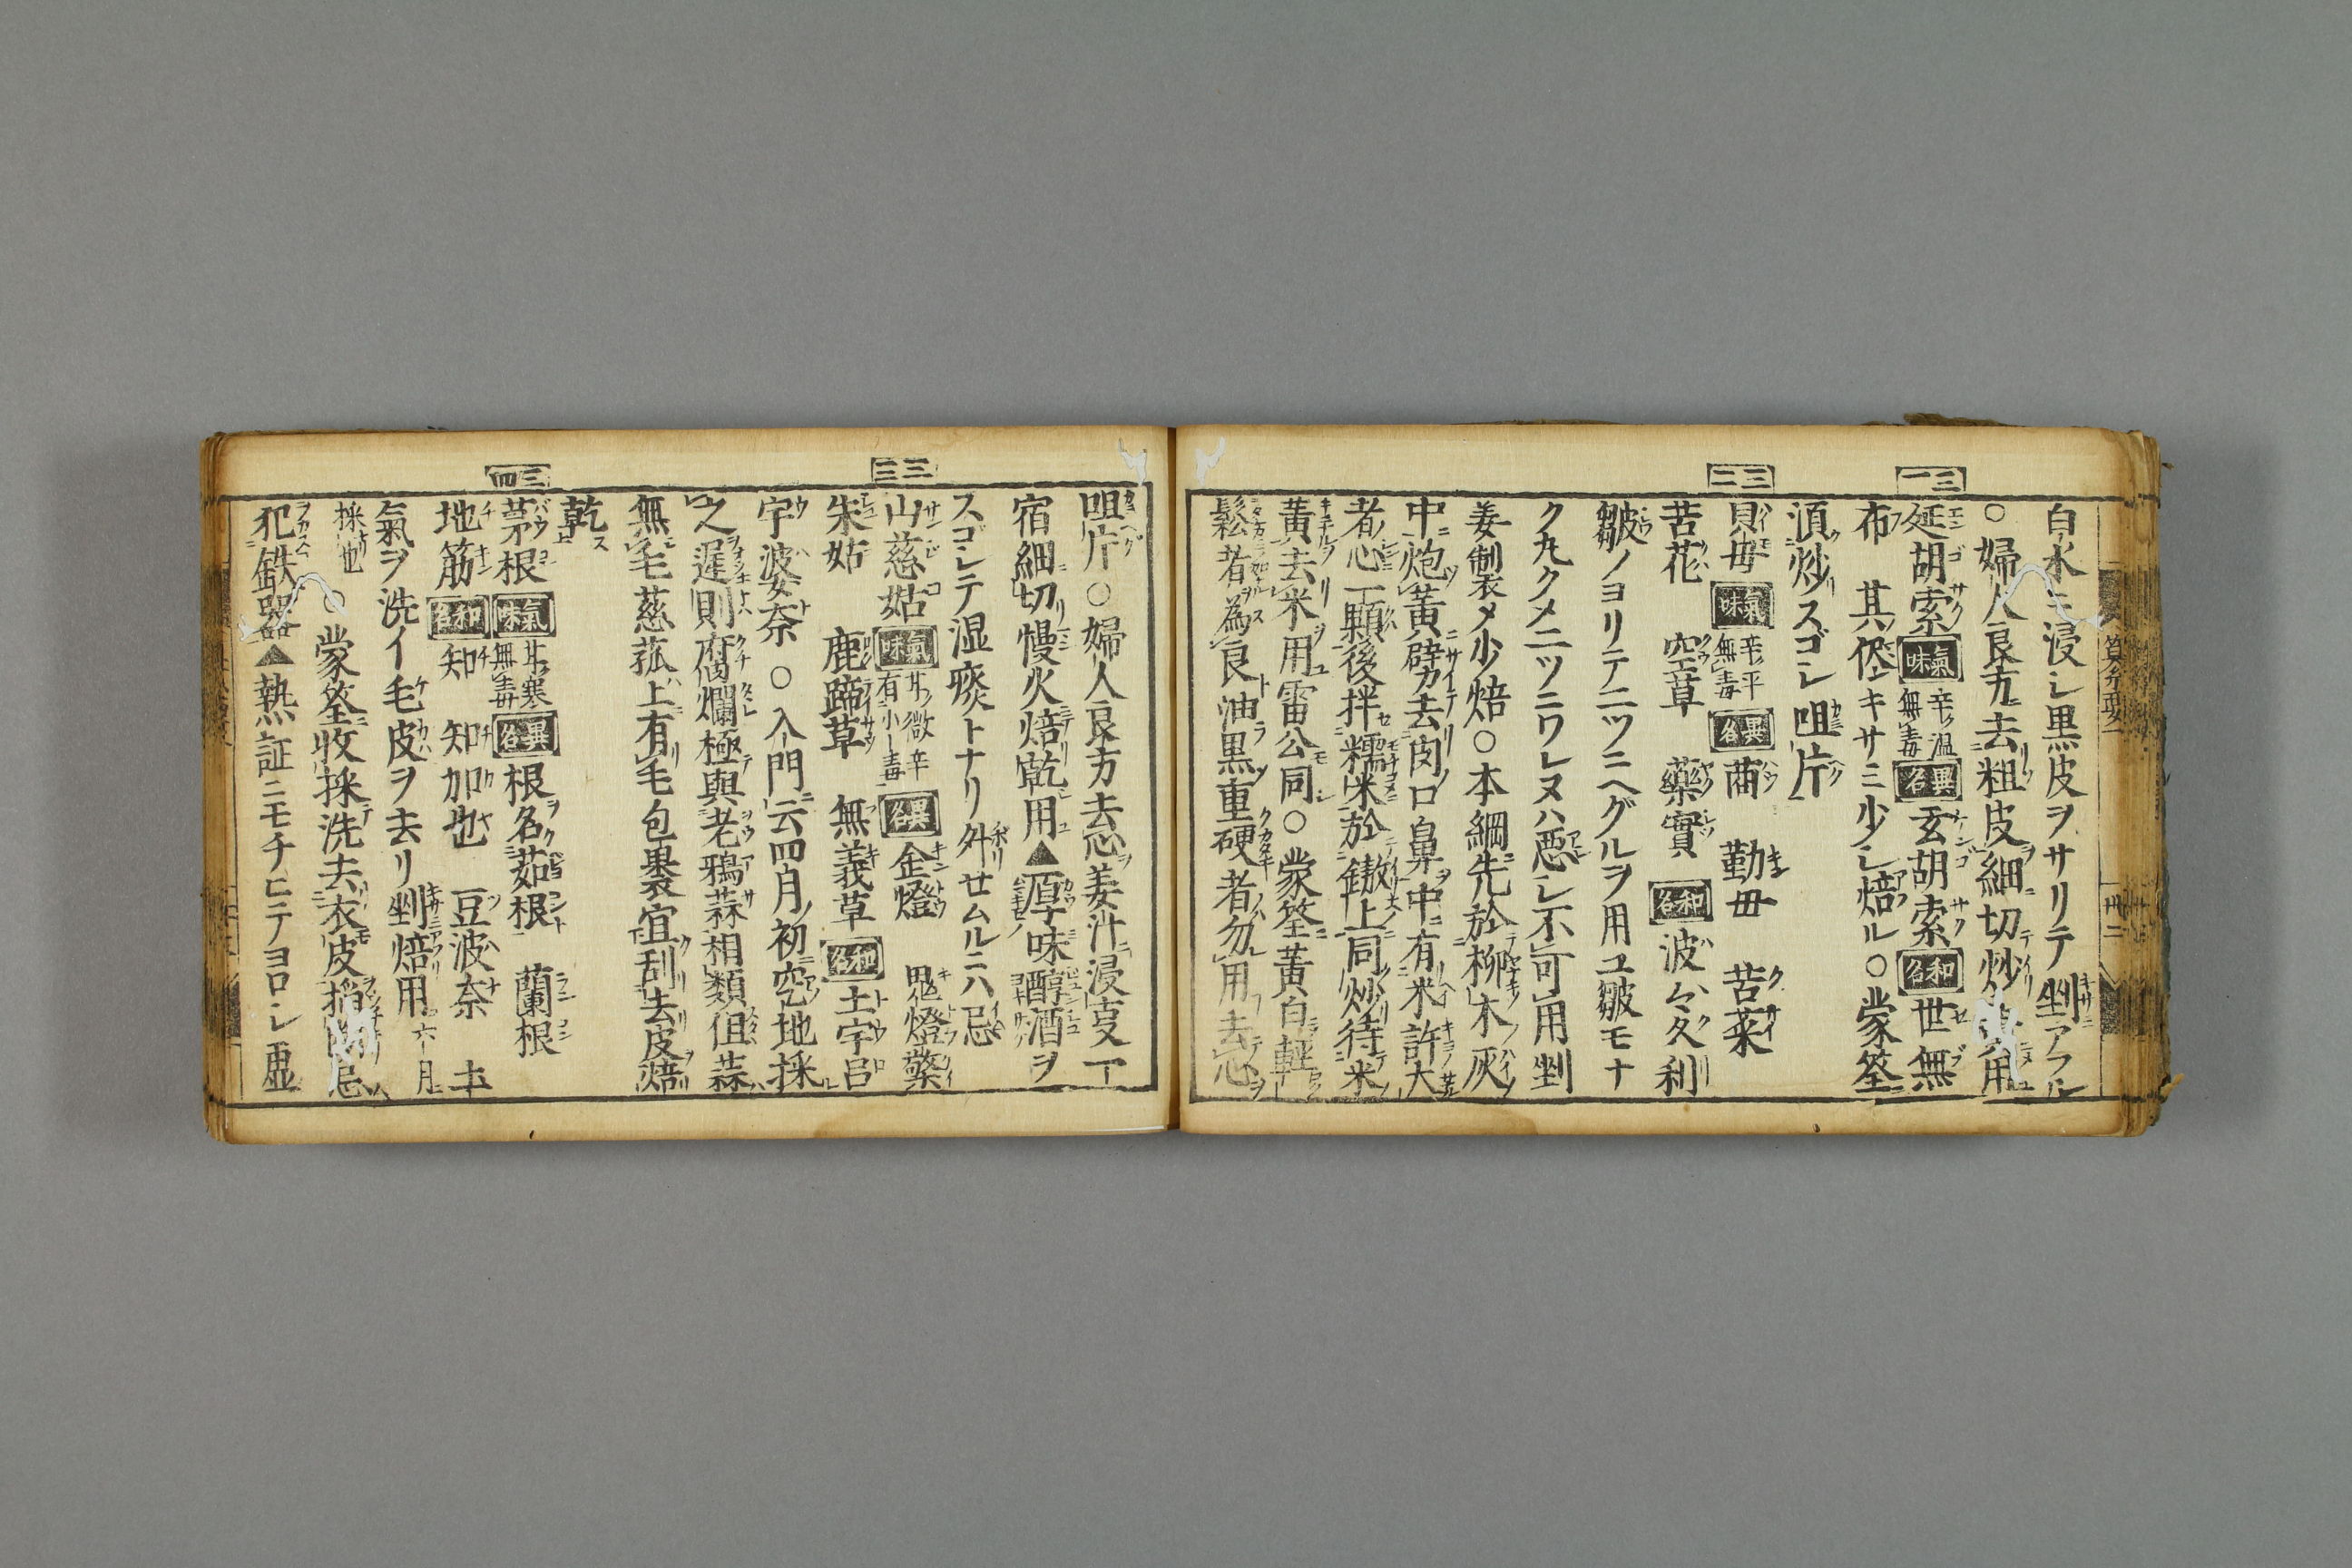 三一
三二
白水ニ浸シ黒皮ヲサリテ剉アフル
○婦人良方ニ去粗皮細切炒用
延胡索 氣味 辛温無毒 異名 玄胡索 和名 世無
布 其侭キサミ少シ焙ル○蒙筌
湏炒スゴシ咀片
貝母 氣味 辛平無毒 異名 莔 勤母 苦菜
苦花 空草 藥實 和名 波々久利
皺ノヨリテ二ツニヘグルヲ用ユ皺モナ
ク丸クメ二ツニワレヌハ悪シ不可用剉
姜制メ少焙○本綱先於柳木灰
中炮黃擘去肉口鼻中有米許大
者心一顆後拌糯米於鏉上同炒待米
黃去米用雷公同○蒙筌黃白輕
鬆者為良油黒重硬者勿用去心
三三
三四
咀片○婦人良方去心姜汁浸亥一
宿細切慢火焙乾用▲厚味醇酒ヲ
スゴシテ湿痰トナリ外サムルニハ忌
山慈姑 氣味 甘微辛有小毒 異名 金燈 鬼燈檠
朱姑 鹿蹄草 無義草 和名 土宇呂
宇波奈 ○入門云四月初空地採
之遲則腐爛極與老鴉蒜相類但蒜
無毛慈菰上有毛包裹宜刮去皮焙
乾
茅根 氣味 甘寒無毒 異名 根名茹根 蘭根
地筋 和名 知 知加也 豆波奈 土
氣ヲ洗イ毛皮ヲ去リ剉焙用 六月
採也 ○蒙筌收採洗去衣皮 忌
犯鉄器▲熱証ニモチヒテヨロシ虚